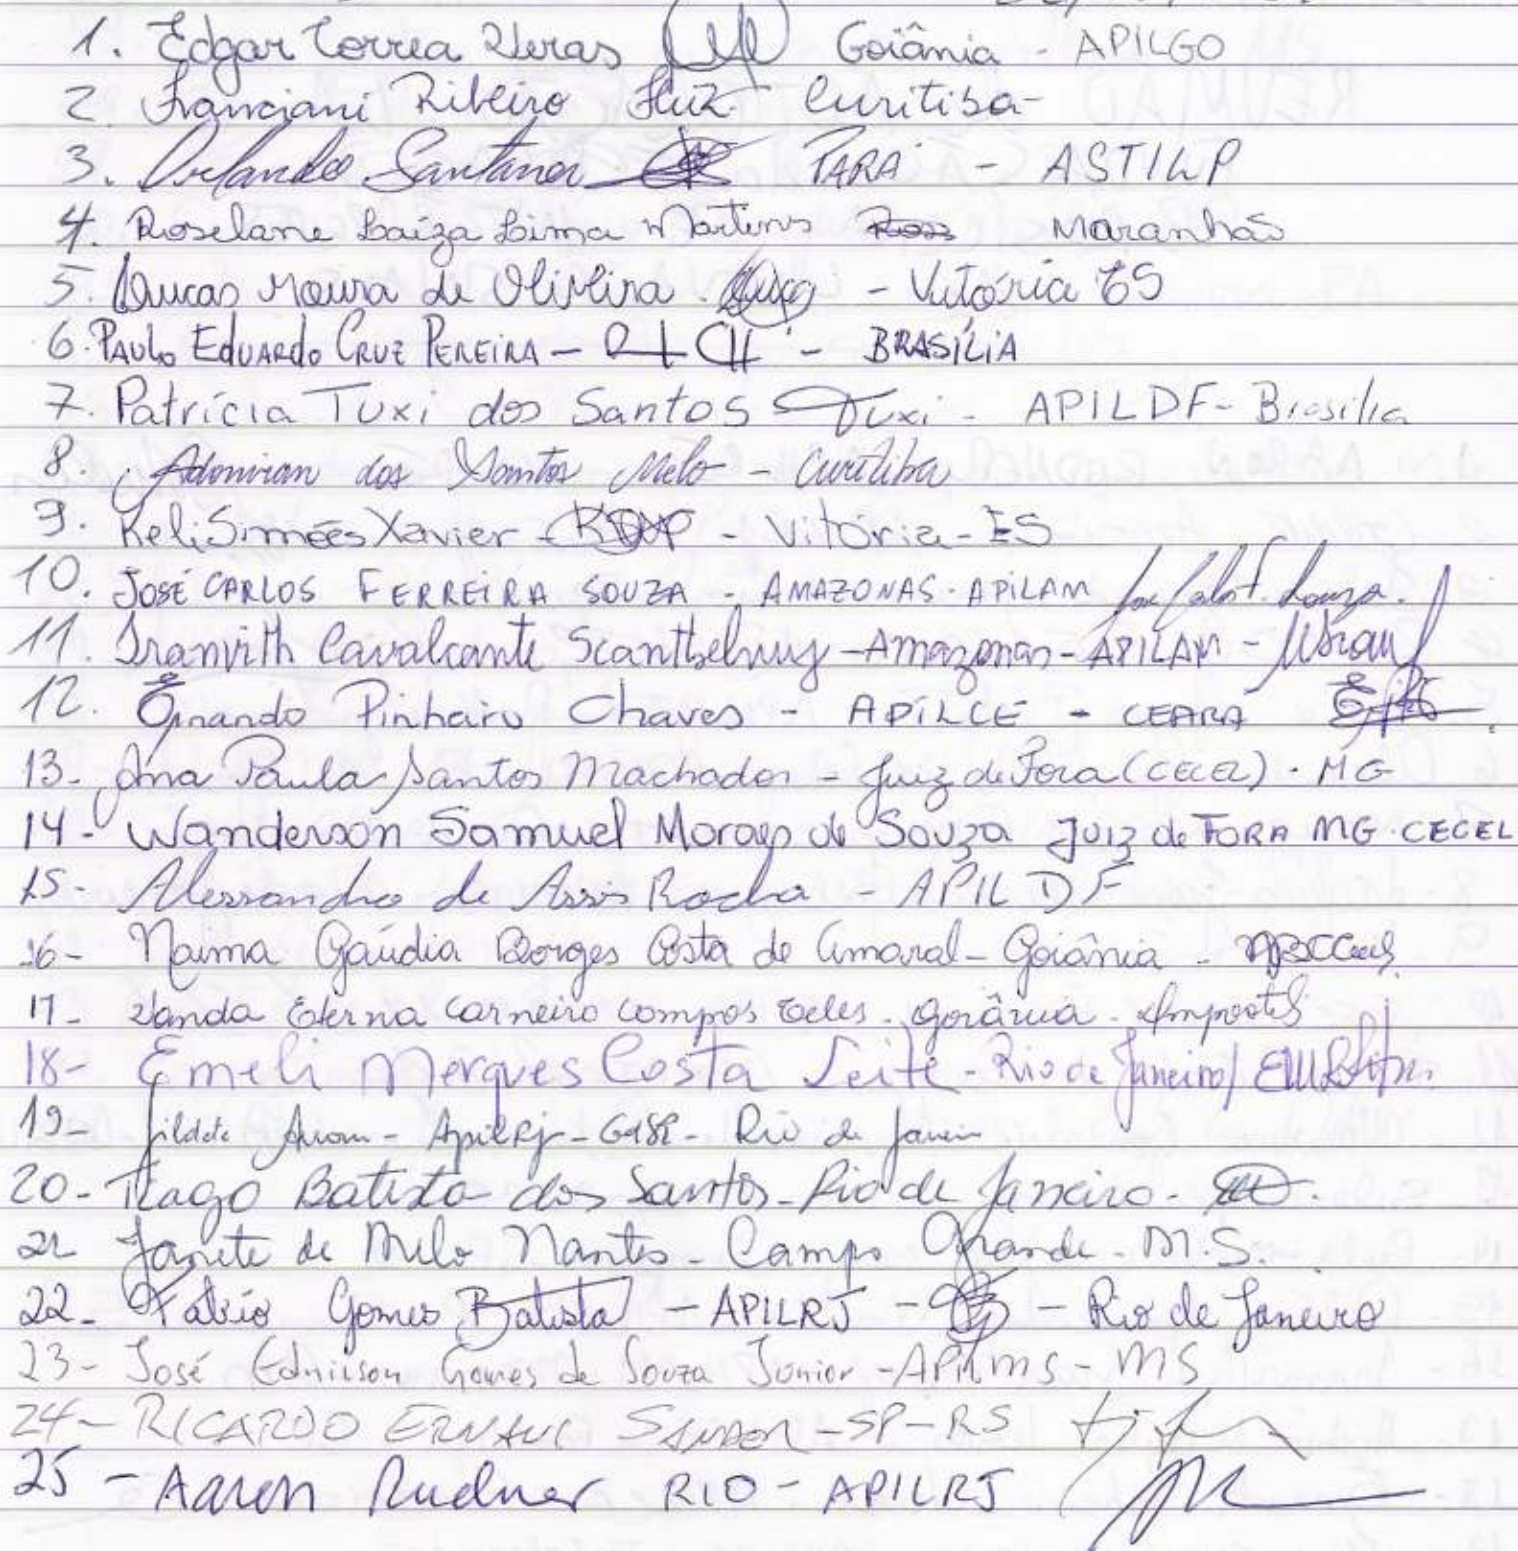 1. Edgar Correa Veras Goiânia - APILGO
2. Franciani Ribeiro Curitiba -
3. Orlando Santana PARÁ - ASTILP
4. Roselane Laiza Lima Martins Maranhão
5. Lucas Moura de Oliveira - Vitória ES
6. PAULO EDUARDO CRUZ PEREIRA - - BRASÍLIA
7. Patrícia Tuxi dos Santos Tuxi - APILDF - Brasília
8. Adonivan dos Santos Melo - Curitiba
9. Keli Simões Xavier - - Vitória - ES
10. JOSÉ CARLOS FERREIRA SOUZA - AMAZONAS - APILAM
11. Iranvith Cavalcante Scantbelruy - Amazonas - APILAM -
12. Ernando Pinheiro Chaves - APILCE - CEARÁ
13- Ana Paula Santos Machado - Juiz de Fora (CECEL) - MG
14- Wanderson Samuel Moraes de Souza JUIZ de FORA MG - CECEL
15- Alessandra de Assis Rocha - APIL DF
16- Naima Gaudia Borges Costa de Amaral - Goiânia -
17- Vanda Eterna Carneiro Campos Teles - Goiânia -
18- Emeli Marques Costa Leite - Rio de Janeiro /
19- Jildete - ApilRj - - Rio de Janeiro
20- Tiago Batista dos Santos - Rio de Janeiro -
21 Janete de Melo Nantes - Campo Grande - M.S.
22- Fábio Gomes Batista - APILRJ - - Rio de Janeiro
23- José Ednilson Gomes de Souza Junior - APILMS - MS
24- RICARDO SANDER - SP - RS
25- Aaron Rudner RIO - APILRJ